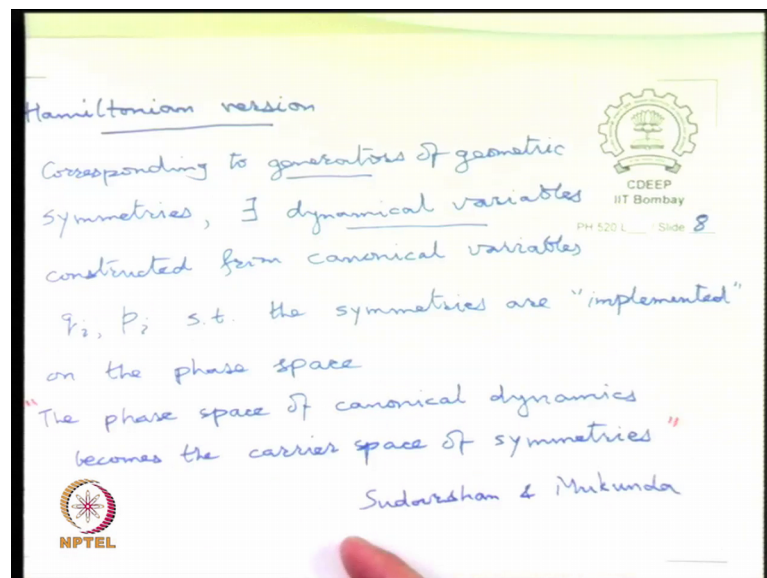 Hamiltonian version
Corresponding to generators of geometric
symmetries, ∃ dynamical variables
constructed from canonical variables
qᵢ, pᵢ s.t. the symmetries are "implemented"
on the phase space
"The phase space of canonical dynamics
becomes the carrier space of symmetries"
Sudarshan & Mukunda
CDEEP
IIT Bombay
PH 520 L___ Slide 8
NPTEL